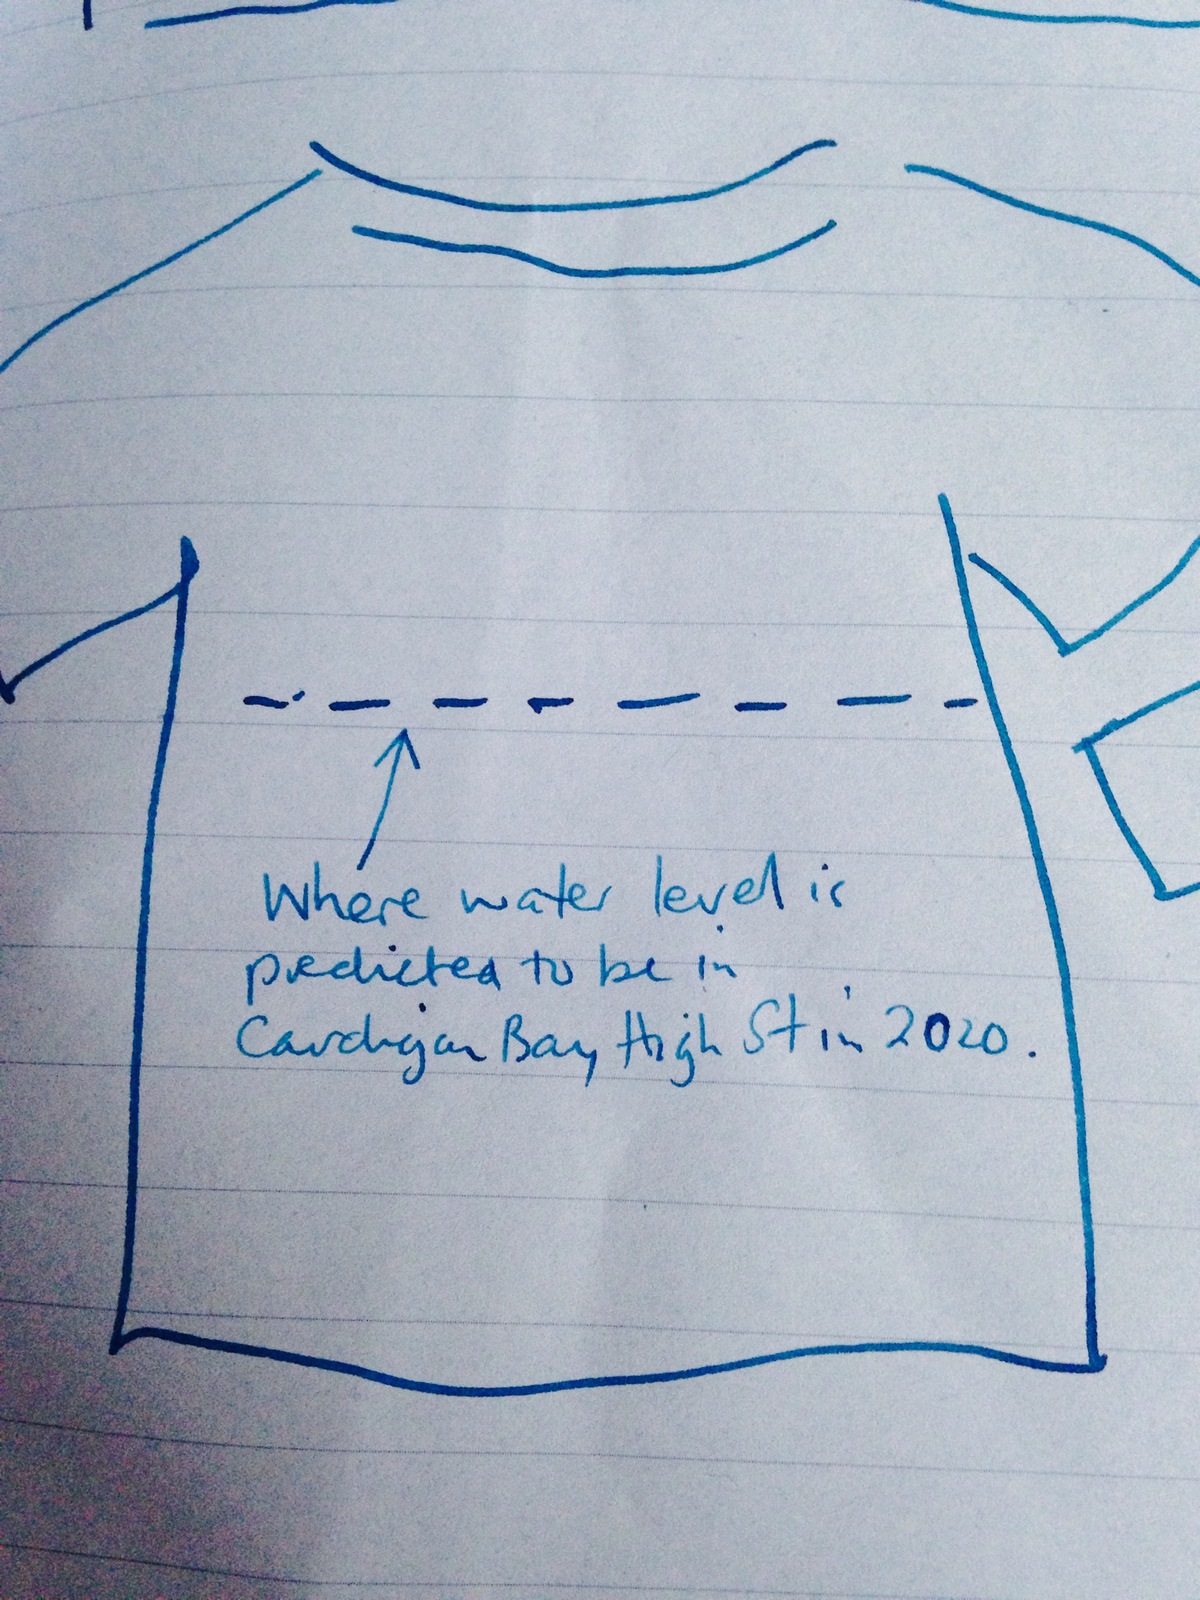 Where water level is
predicted to be in
Cardigan Bay High St in 2020.